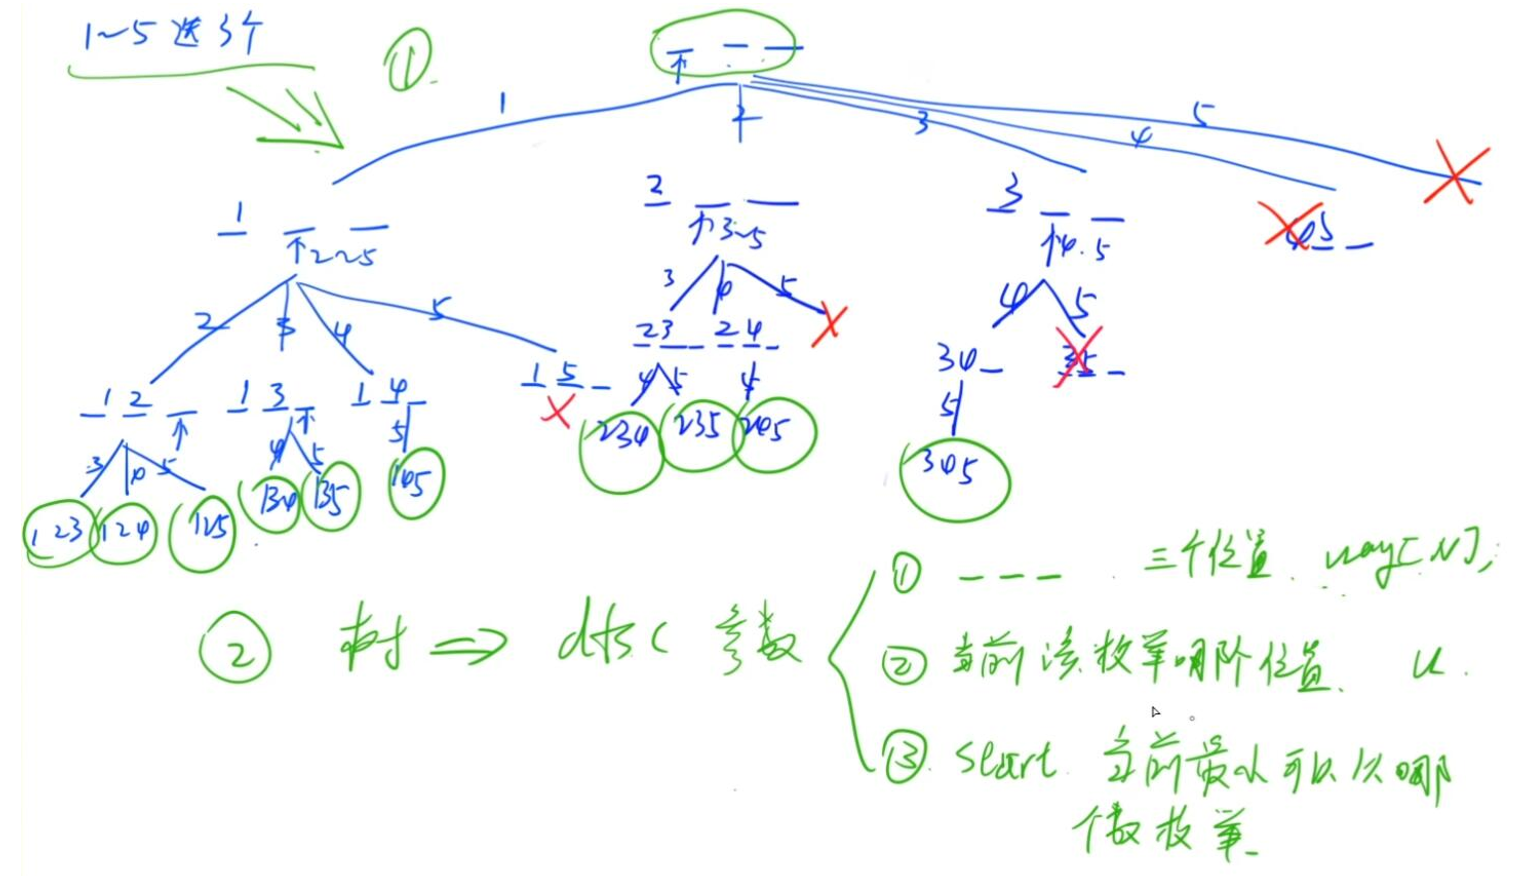 1~5 选 3个
①.
1
2
3
4
5
1
2~5
2
3~5
3
4.5
45
2
3
4
5
3
4
5
4
5
1 2
1 3
1 4
1 5
23
24
34
35
3
4
5
4
5
5
4
5
5
5
123
124
125
134
135
145
234
235
245
345
② 树 ⇒ dfs( 参数
① _ _ _ . 三个位置. way[N];
② 当前该枚举哪个位置. u.
③. start. 当前最小可以从哪
个数枚举